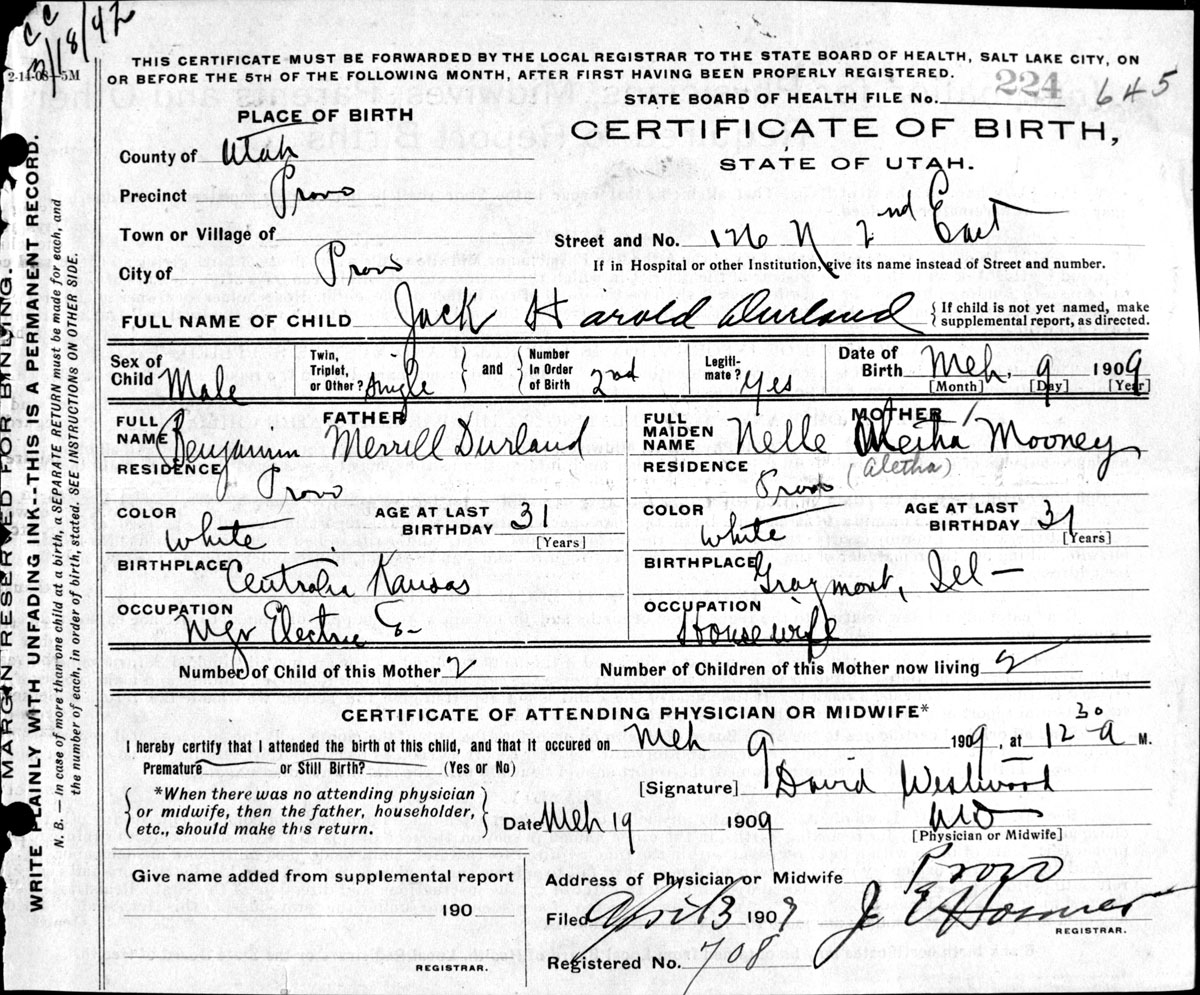 C C
2-14-08—5M
THIS CERTIFICATE MUST BE FORWARDED BY THE LOCAL REGISTRAR TO THE STATE BOARD OF HEALTH, SALT LAKE CITY, ON
OR BEFORE THE 5TH OF THE FOLLOWING MONTH, AFTER FIRST HAVING BEEN PROPERLY REGISTERED.
STATE BOARD OF HEALTH FILE No. 224 645
PLACE OF BIRTH
CERTIFICATE OF BIRTH,
STATE OF UTAH.
County of Utah
Precinct Provo
Town or Village of
Street and No. 176 N 2nd East
If in Hospital or other Institution, give its name instead of Street and number.
City of Provo
FULL NAME OF CHILD Jack Harold Durland { If child is not yet named, make
supplemental report, as directed.
Sex of Child Male Twin, Triplet, or Other? Single } and { Number In Order of Birth 2nd Legiti-mate? yes Date of Birth Mch 9 1909
[Month] [Day] [Year]
FATHER
FULL NAME Benjamin Merrill Durland
RESIDENCE Provo
COLOR White AGE AT LAST BIRTHDAY 31
[Years]
BIRTHPLACE Centralia Kansas
OCCUPATION Mgr Electric Co
MOTHER
FULL MAIDEN NAME Nelle Aleitha Mooney
(Aletha)
RESIDENCE Provo
COLOR White AGE AT LAST BIRTHDAY 31
[Years]
BIRTHPLACE Graymont, Ill —
OCCUPATION Housewife
Number of Child of this Mother 2 Number of Children of this Mother now living 2
CERTIFICATE OF ATTENDING PHYSICIAN OR MIDWIFE*
I hereby certify that I attended the birth of this child, and that it occured on Mch 9 1909, at 12 30 a M.
Premature or Still Birth? (Yes or No)
[Signature] David Westwood
MD
[Physician or Midwife]
{ *When there was no attending physician
or midwife, then the father, householder,
etc., should make this return. }
Date Mch 19 1909
Give name added from supplemental report
190
REGISTRAR.
Address of Physician or Midwife Provo
Filed April 3 1909 J E Hosmer
REGISTRAR.
Registered No. 708
MARGIN RESERVED FOR BINDING.
WRITE PLAINLY WITH UNFADING INK--THIS IS A PERMANENT RECORD.
N. B. — In case of more than one child at a birth, a SEPARATE RETURN must be made for each, and
the number of each, in order of birth, stated. SEE INSTRUCTIONS ON OTHER SIDE.